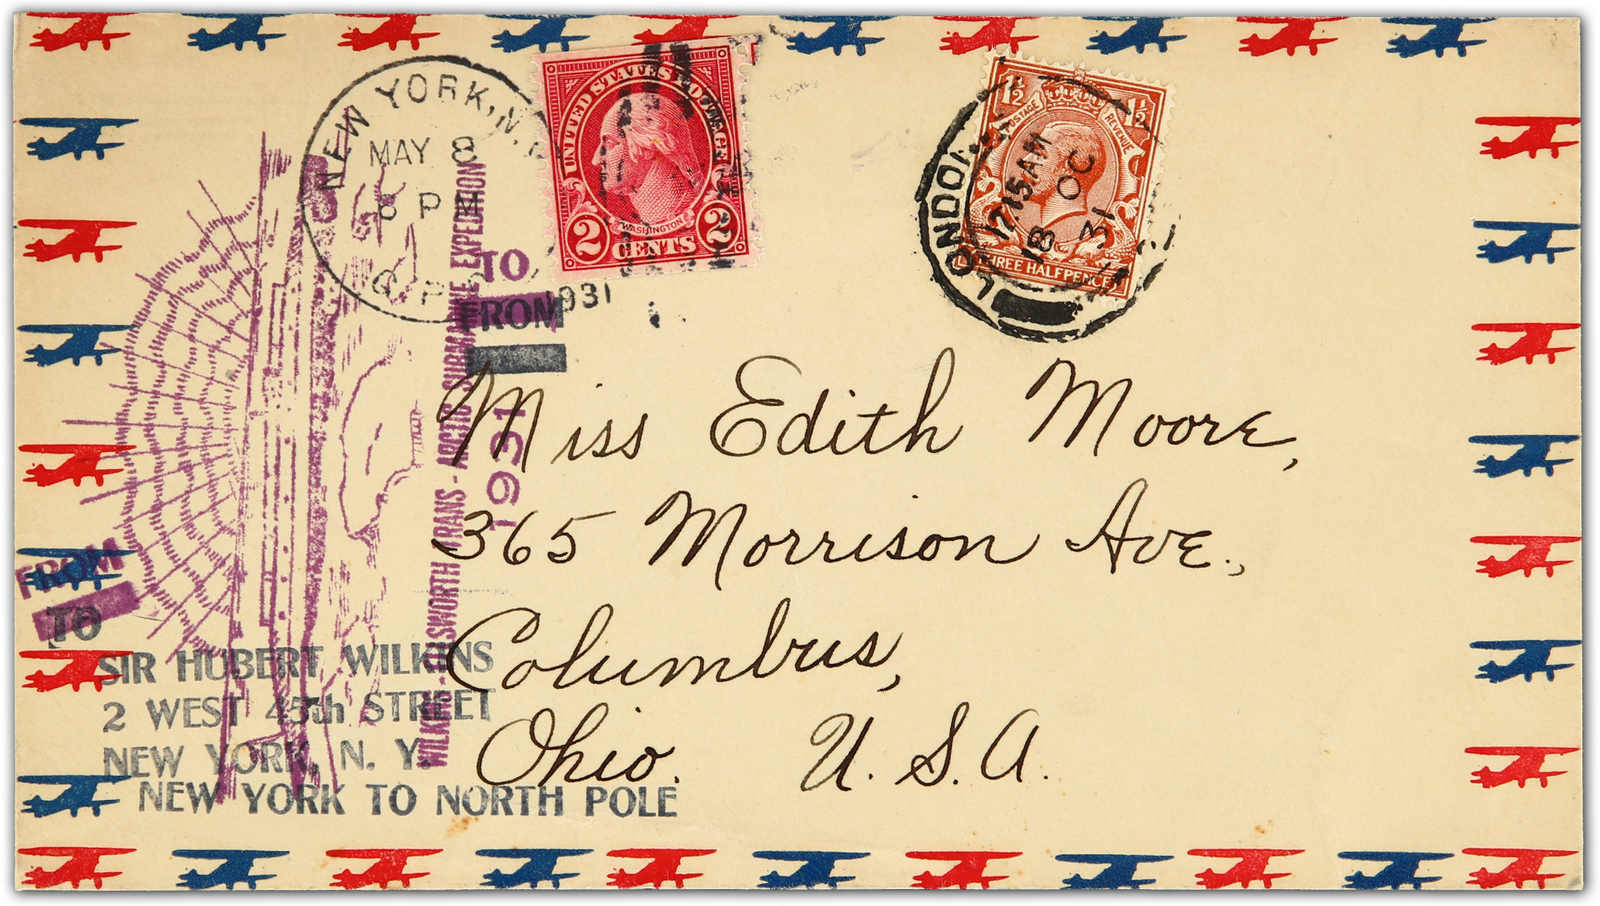 NEW YORK, N.
MAY 8
8 PM
G. P. O.
1931
UNITED STATES POSTAGE
WASHINGTON
2 CENTS 2
LONDON
12 15 AM
18 OC
31
1½ 1½
POSTAGE REVENUE
THREE HALFPENCE
TO
FROM
WILKINS-ELLSWORTH TRANS-ARCTIC SUBMARINE EXPEDITION
1931
Miss Edith Moore,
365 Morrison Ave.,
Columbus,
Ohio. U. S. A.
FROM
TO
SIR HUBERT WILKINS
2 WEST 45th STREET
NEW YORK, N. Y.
NEW YORK TO NORTH POLE